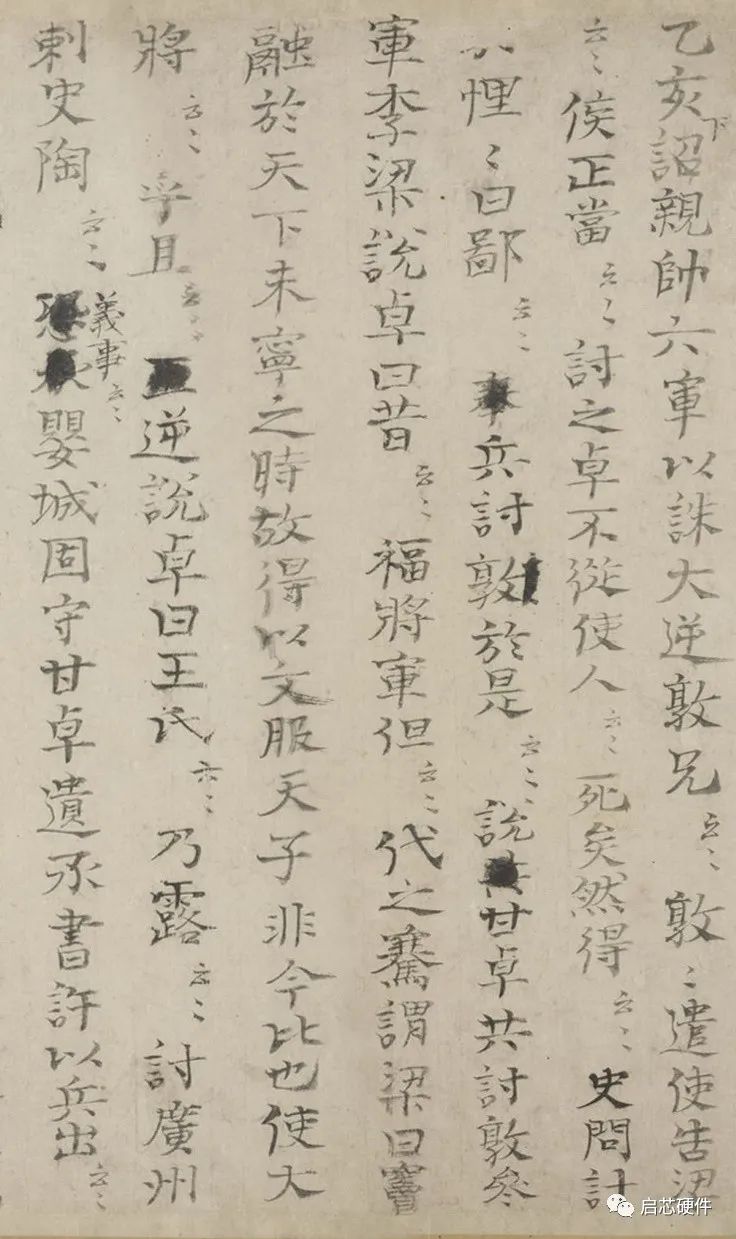 乙亥詔親帥六軍以誅大逆敦兄云〻敦〻遣使告梁
下
云〻侯正當云〻討之卓不從使人云〻死矣然得云〻史問計
悝〻曰鄙云〻兵討敦於是云〻說甘卓共討敦參
軍李梁說卓曰昔云〻福將軍但云〻代之騫謂梁曰竇
融於天下未寧之時故得以文服天子非今比也使大
將云〻乎且云〻逆說卓曰王氏云〻乃露云〻討廣州
刺史陶云〻義事云〻嬰城固守甘卓遺承書許以兵出云〻
启芯硬件